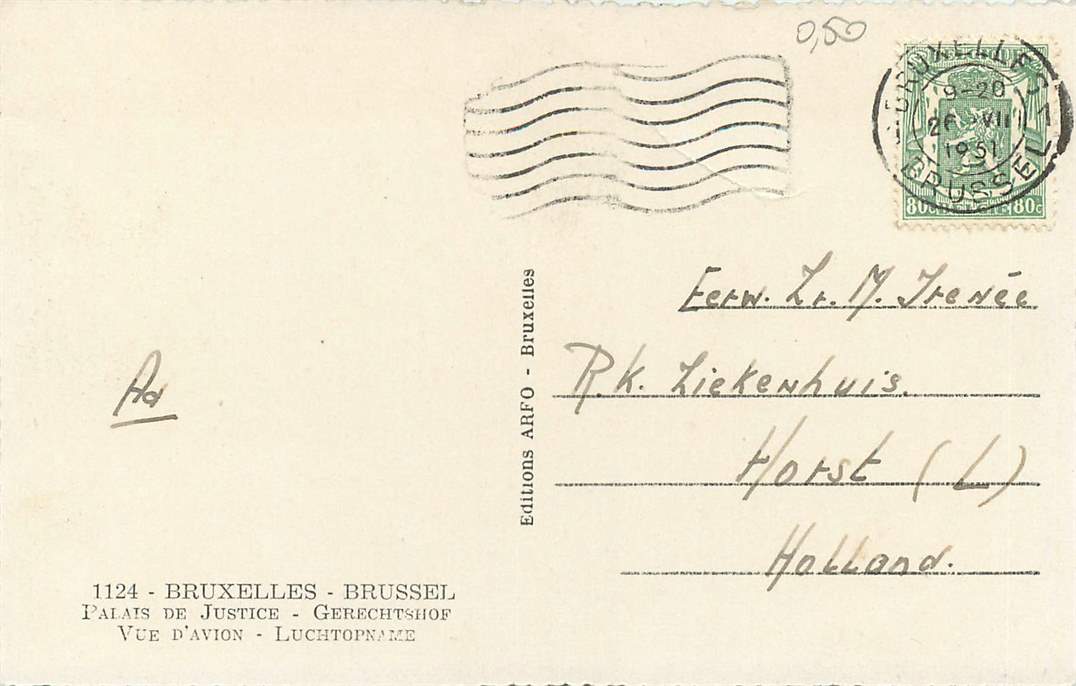 0,50
BRUXELLES 1
9-20
26 VII
1951
BRUSSEL
80c 80c
Eerw. Zr. M. Irenée
R.K. Ziekenhuis.
Horst (L)
Holland.
Ad
Editions ARFO - Bruxelles
1124 - BRUXELLES - BRUSSEL
PALAIS DE JUSTICE - GERECHTSHOF
VUE D'AVION - LUCHTOPNAME